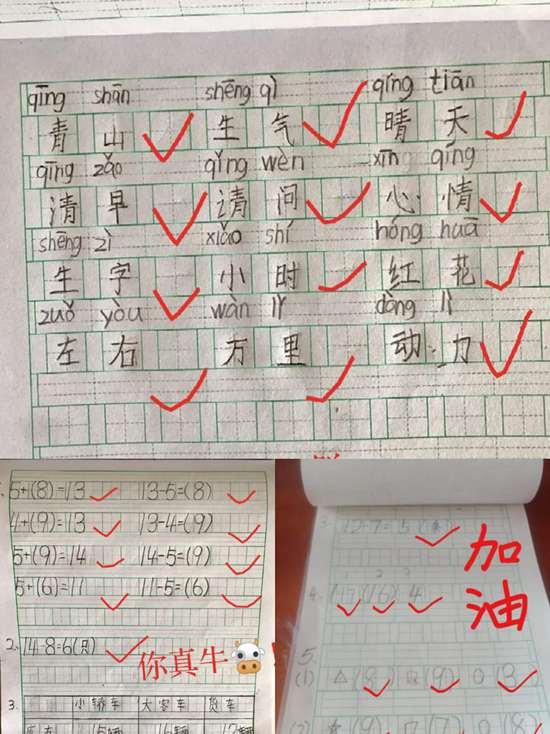 qīng shān shēng qì qíng tiān
青山 生气 晴天
qīng zǎo qǐng wèn xīn qíng
清早 请问 心情
shēng zì xiǎo shí hóng huā
生字 小时 红花
zuǒ yòu wàn lǐ dòng lì
左右 万里 动力
5+(8)=13 13-5=(8)
4+(9)=13 13-4=(9)
5+(9)=14 14-5=(9)
5+(6)=11 11-5=(6)
2、14-8=6(只)
你真牛
3、
小轿车 大客车 货车
3、12-7=5
加油
4、 (16) 4
5、
(1) △(8) □(9) ○(3)
(2) ★(9) □(7) ○(8